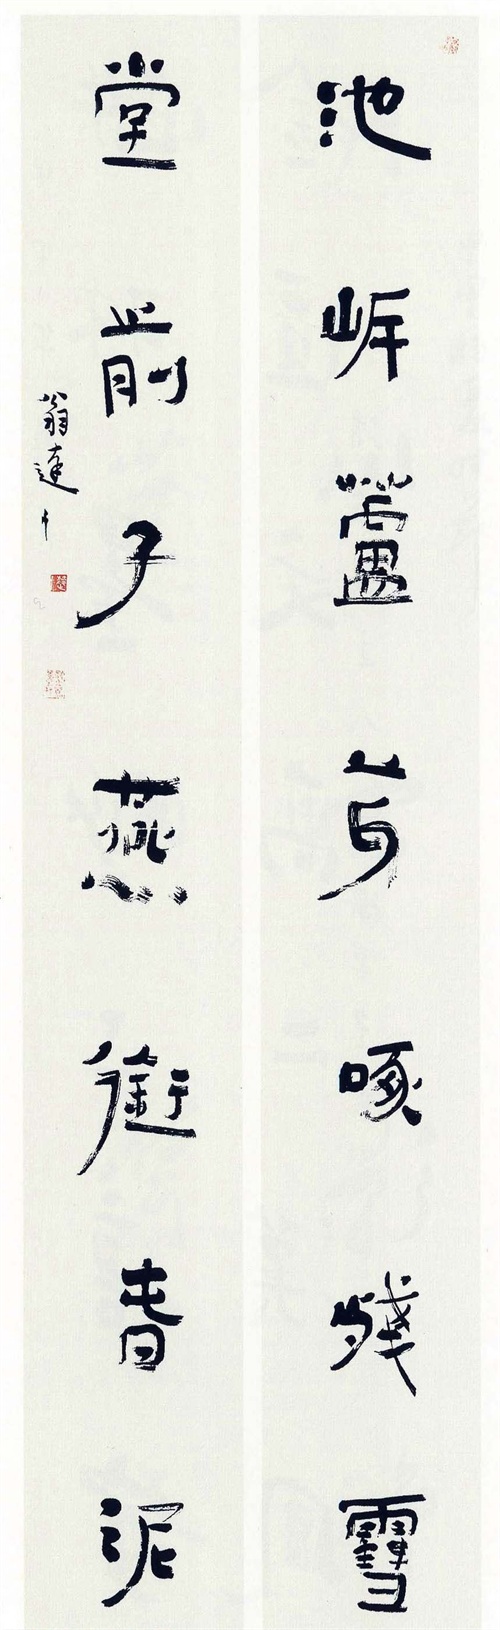 池岸蘆芽啄殘雪
堂前子燕銜春泥
翁達